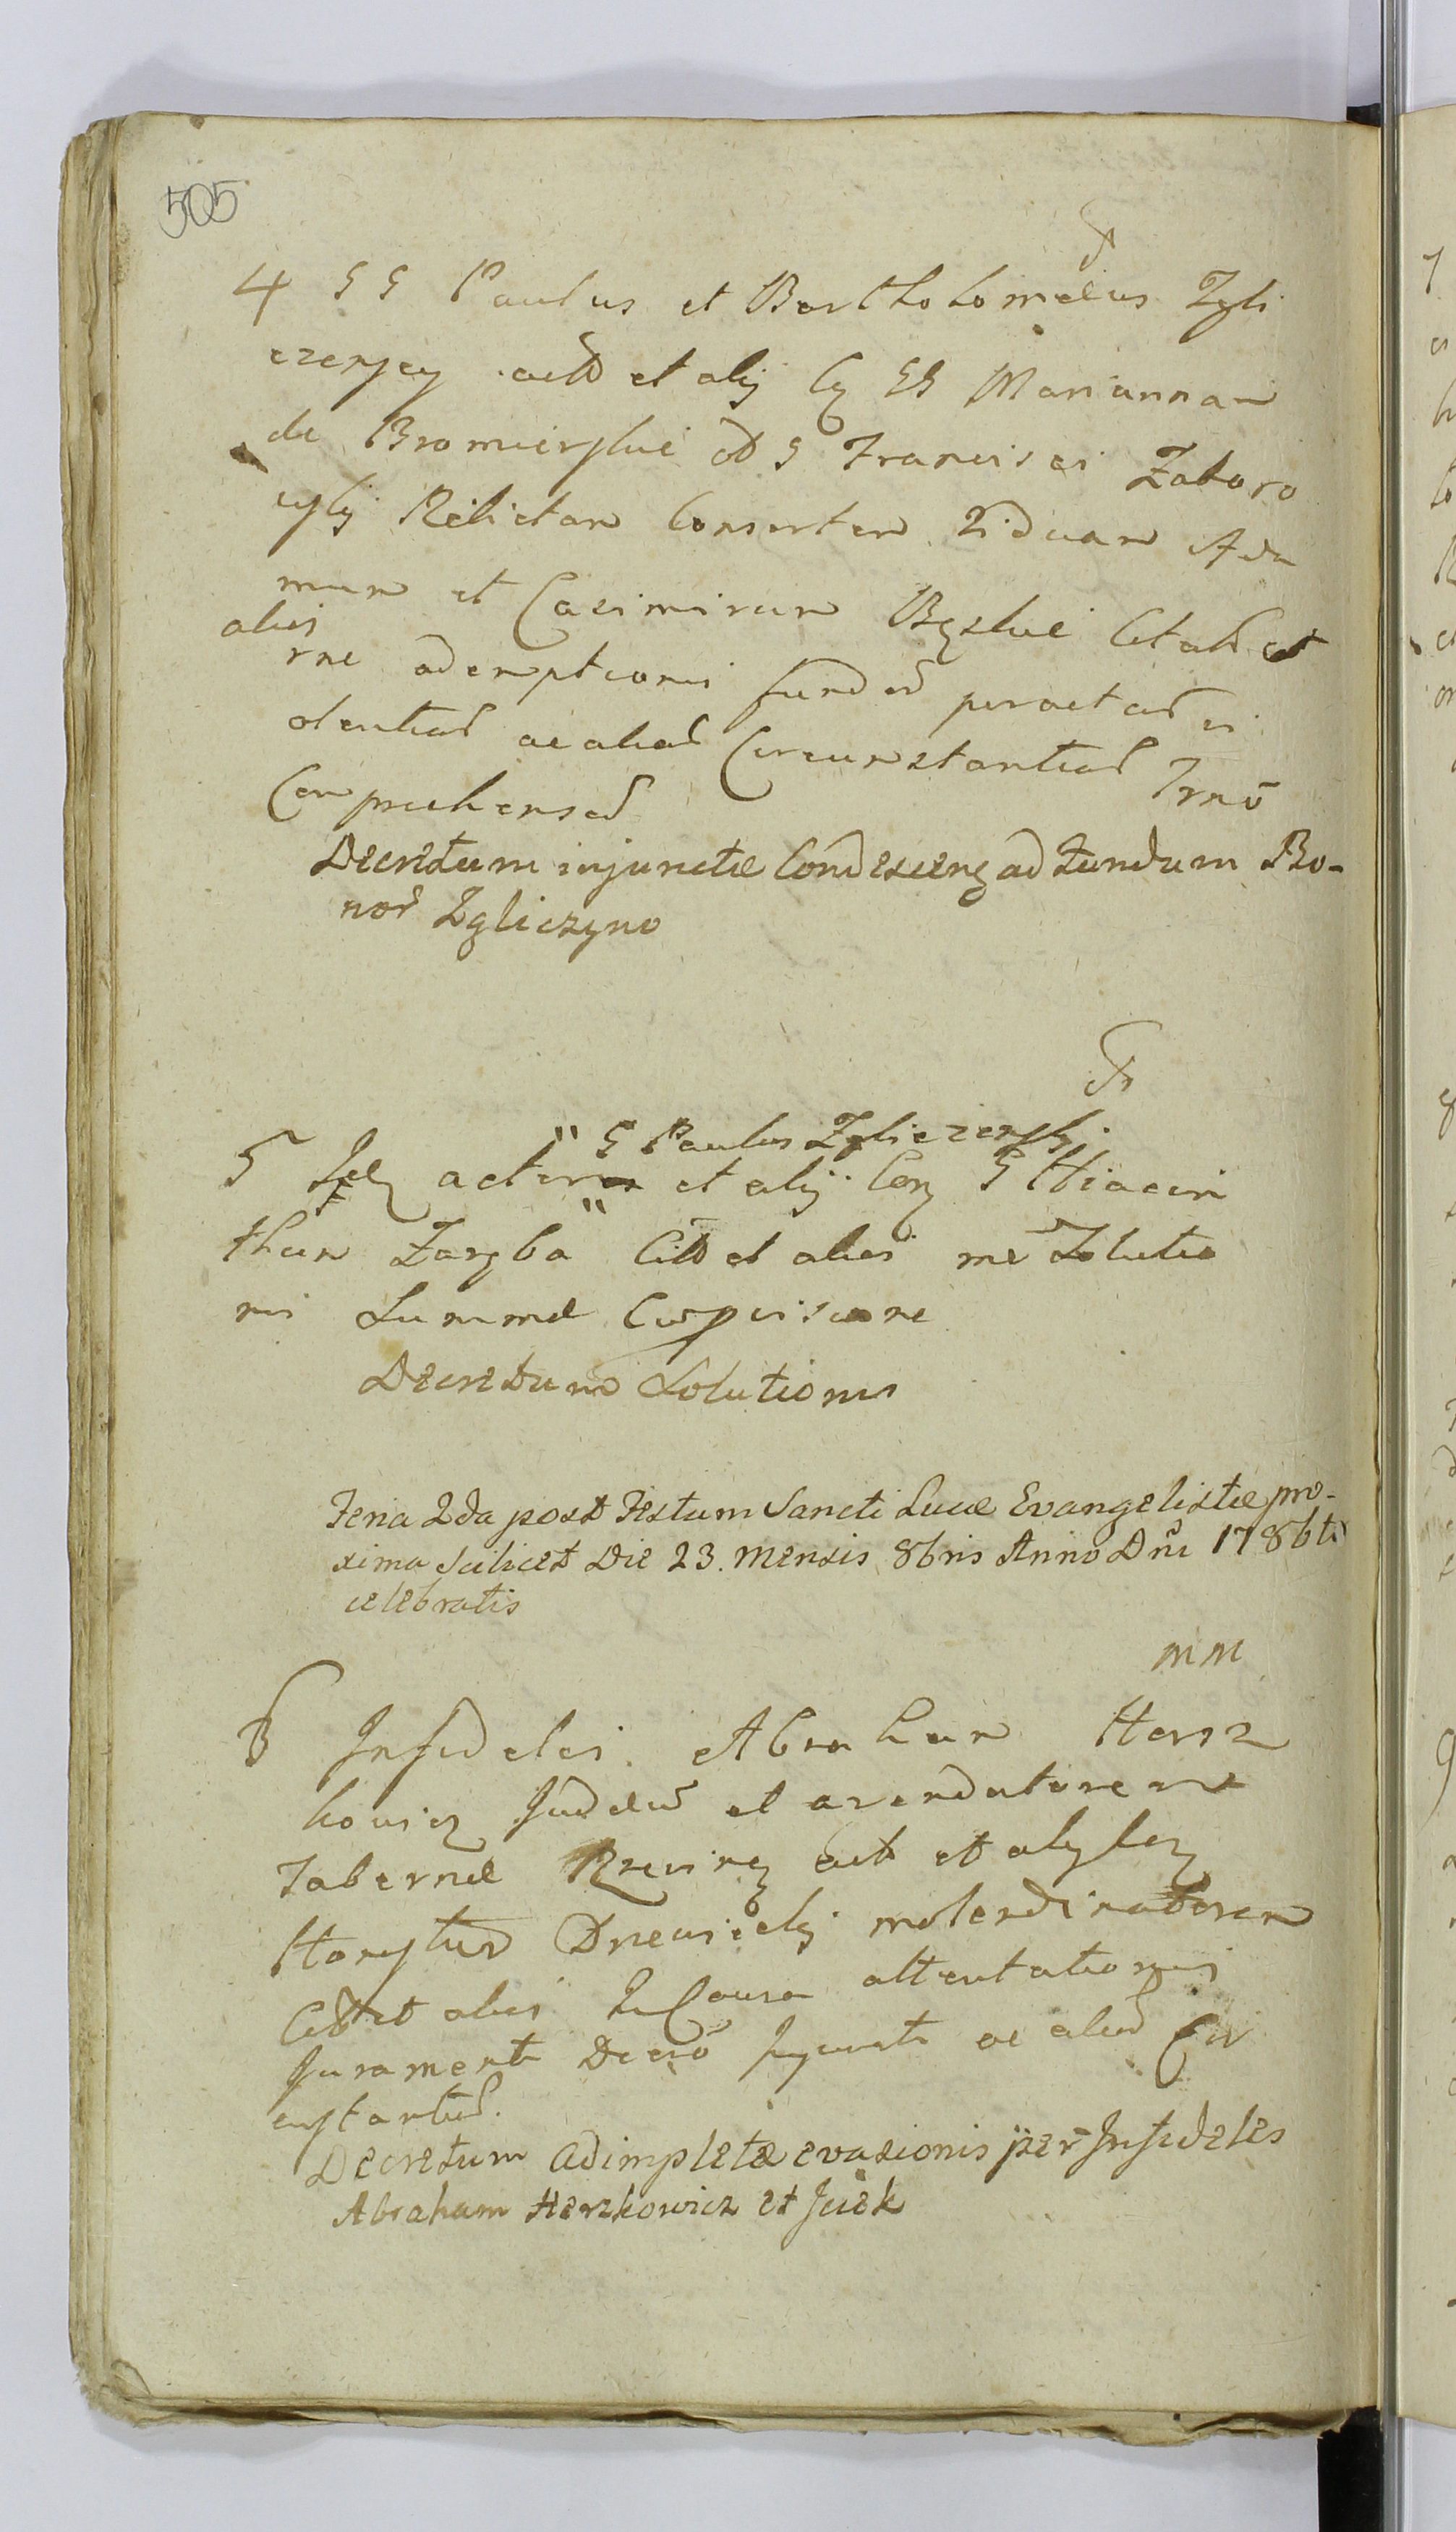 505
4 GG Paulus et Bartholomæus Zgli
czenscy actt et alij Cq GG Mariannam
de Bromierskie ad G Francisci Zaboro
wskij Relictam Consortem Viduam Ada
mum et Casimirum Bęskie Citatt et
alios rne ademptionis fundor peractar vi
olentiar ac aliar Circumstantiar Trnō
Comprehensar
Decretum injunctæ Condescens ad fundum Bo-
nor Zgliczyno
" G Paulus Zgliczenski
5 actor et alij Conq G Hiacin
thum Zaręba Citt et alios rnē Solutio
nis Summæ
Decretum Solutionis
Feria 2da post Festum Sancti Lucæ Evangelistæ pro-
xima scilicet Die 23. Mensis 8bris Anno Dni 1786to
celebratis
MM
6 Infideles Abraham Hersz
kowicz Judæus et arendatorem
Tabernæ act et alij Cq
molendinatorem
Citt et alios In Causa attentationis
Juramenti Decrō Injuncti ac aliar Cir
cumstantiar.
Decretum adimpletæ evasionis per Infideles
Abraham Herzkowicz et Jcek